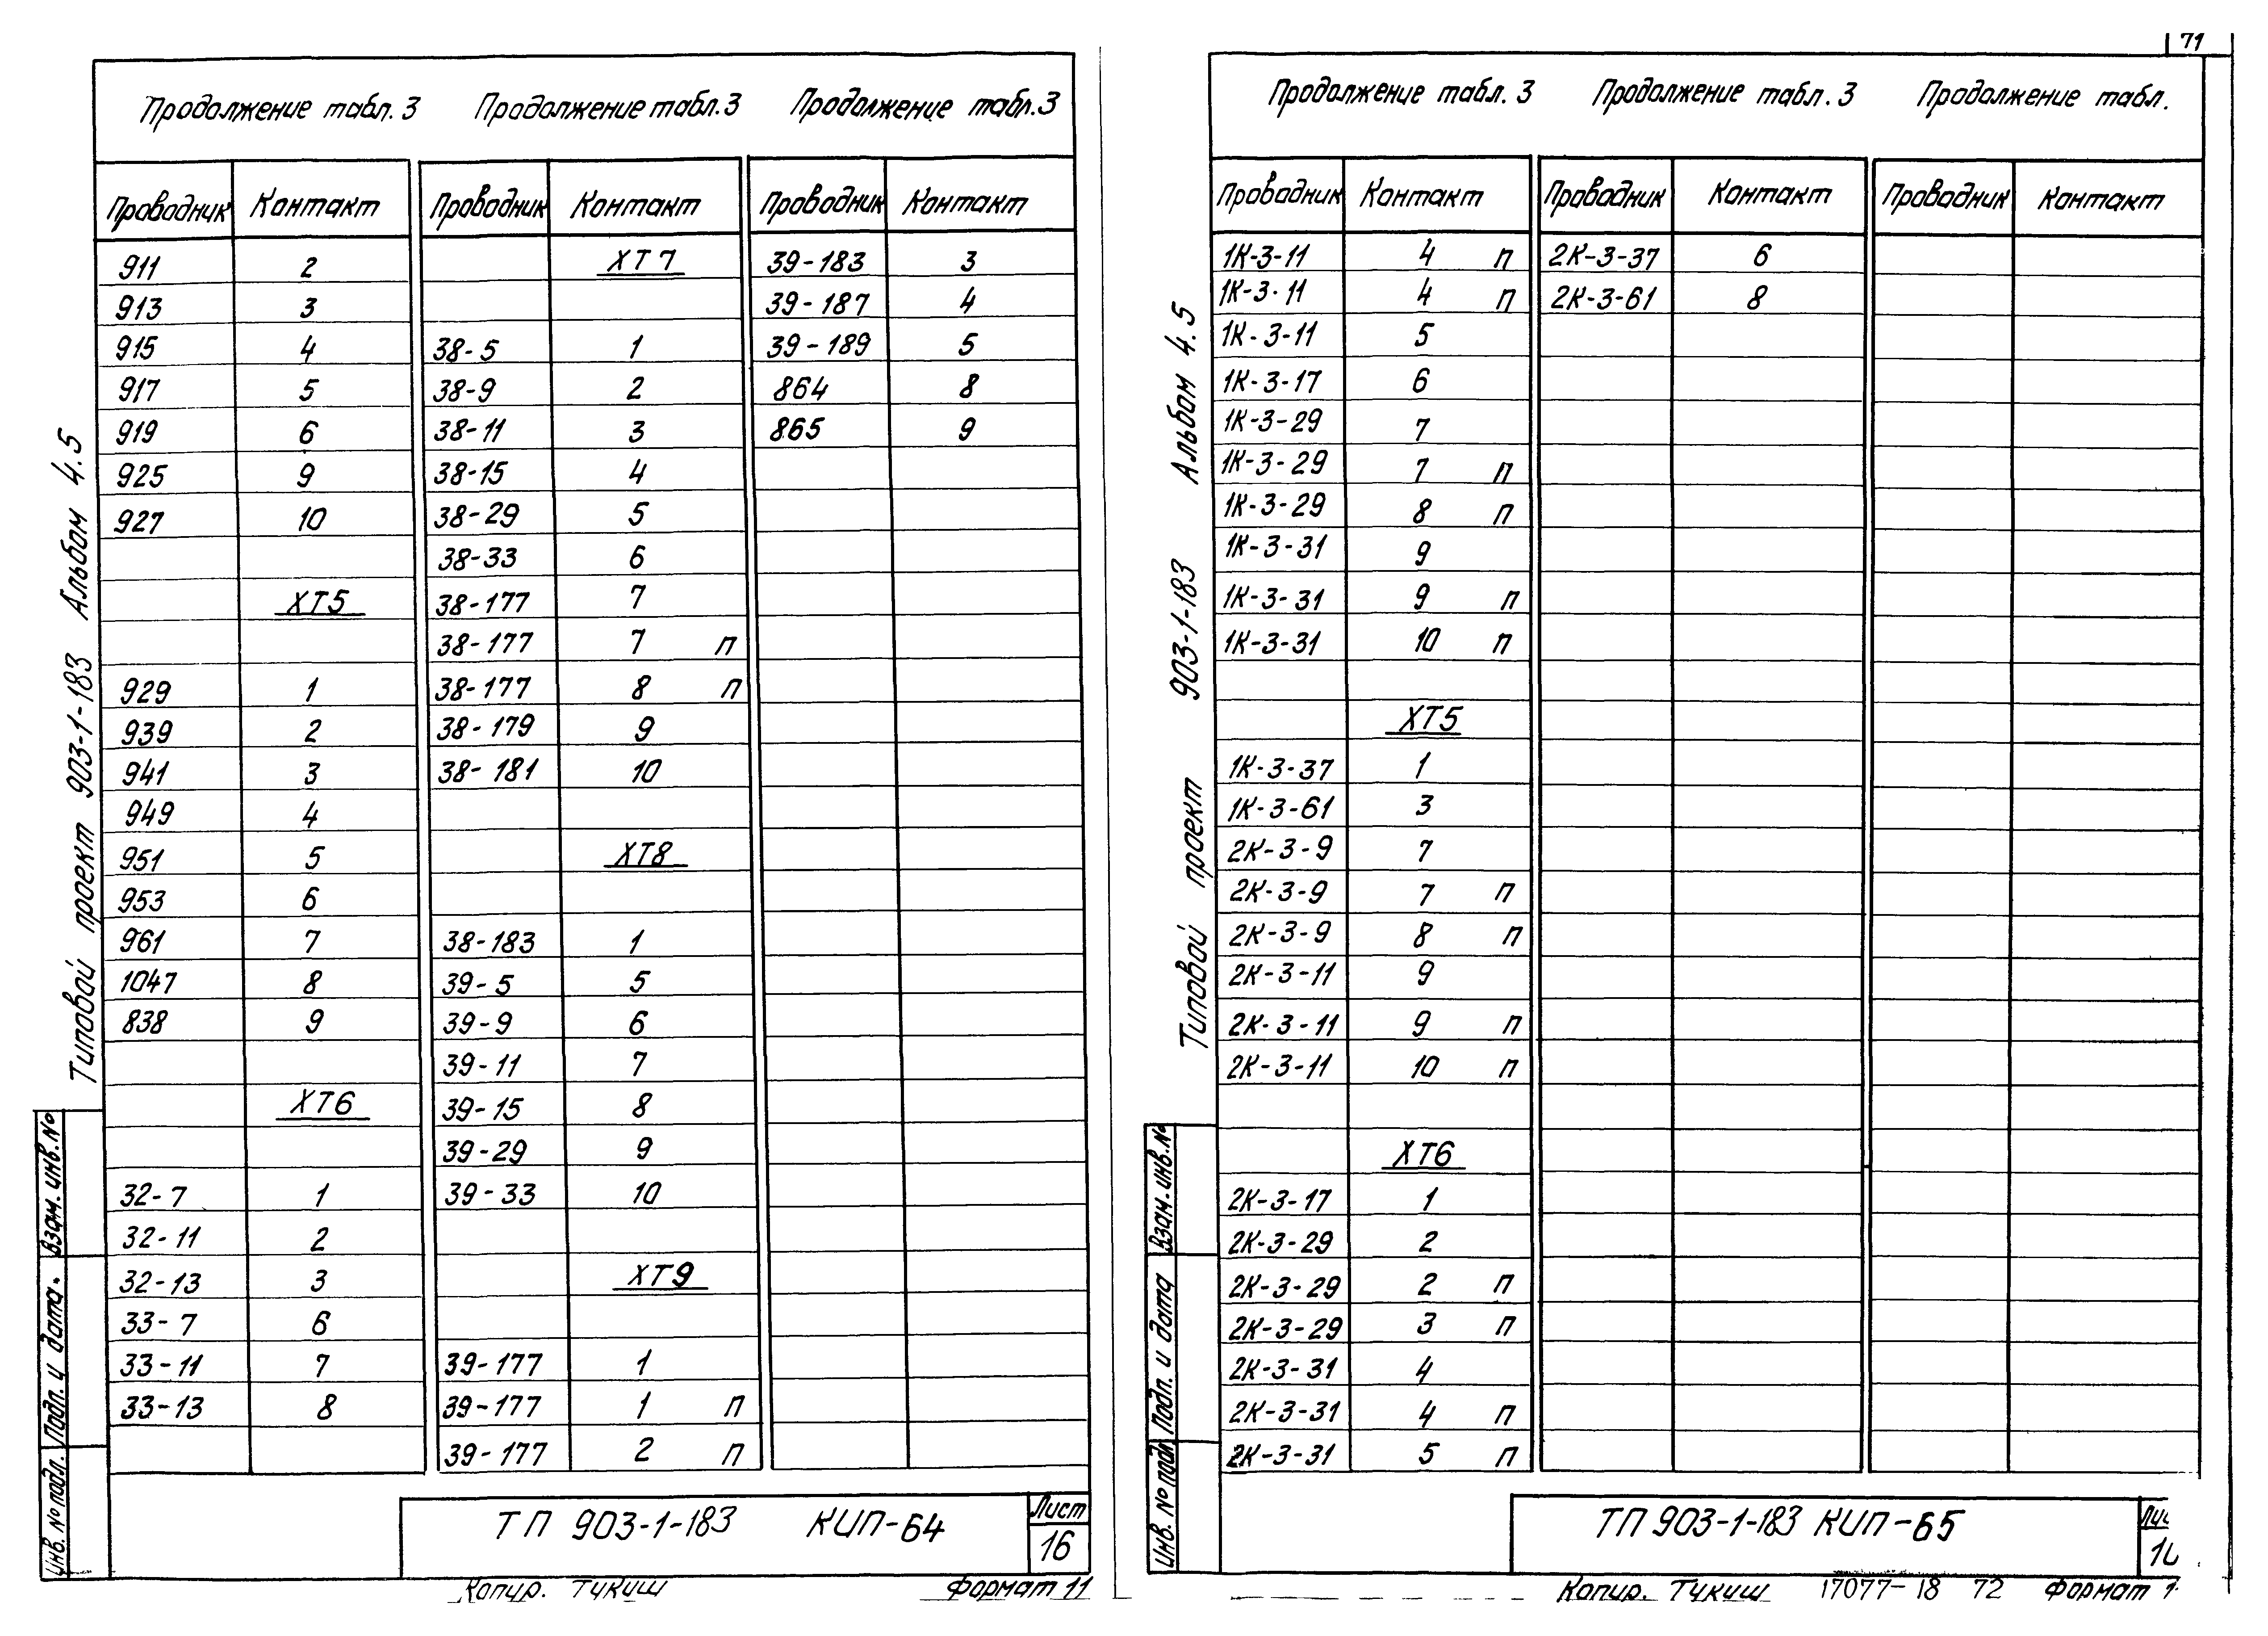 71
Продолжение табл. 3 Продолжение табл.3 Продолжение табл.3
Проводник Контакт Проводник Контакт Проводник Контакт
911 2 ХТ7 39-183 3
913 3 39-187 4
915 4 38-5 1 39-189 5
917 5 38-9 2 864 8
919 6 38-11 3 865 9
925 9 38-15 4
927 10 38-29 5
38-33 6
ХТ5 38-177 7
38-177 7 п
929 1 38-177 8 п
939 2 38-179 9
941 3 38-181 10
949 4
951 5 ХТ8
953 6
961 7 38-183 1
1047 8 39-5 5
838 9 39-9 6
39-11 7
ХТ6 39-15 8
39-29 9
32-7 1 39-33 10
32-11 2
32-13 3 ХТ9
33-7 6
33-11 7 39-177 1
33-13 8 39-177 1 п
39-177 2 п
Типовой проект 903-1-183 Альбом 4.5
Взам. инв. №
Подп. и дата.
Инв. № подл.
ТП 903-1-183 КИП-64
Лист
16
Копир. Тукиш Формат 11
Продолжение табл. 3 Продолжение табл. 3 Продолжение табл.
Проводник Контакт Проводник Контакт Проводник Контакт
1К-3-11 4 п 2К-3-37 6
1К-3-11 4 п 2К-3-61 8
1К-3-11 5
1К-3-17 6
1К-3-29 7
1К-3-29 7 п
1К-3-29 8 п
1К-3-31 9
1К-3-31 9 п
1К-3-31 10 п
ХТ5
1К-3-37 1
1К-3-61 3
2К-3-9 7
2К-3-9 7 п
2К-3-9 8 п
2К-3-11 9
2К-3-11 9 п
2К-3-11 10 п
ХТ6
2К-3-17 1
2К-3-29 2
2К-3-29 2 п
2К-3-29 3 п
2К-3-31 4
2К-3-31 4 п
2К-3-31 5 п
Типовой проект 903-1-183 Альбом 4.5
Взам. инв. №
Подп. и дата
Инв. № подл
ТП 903-1-183 КИП-65
Копир. Тукиш 17077-18 72 Формат